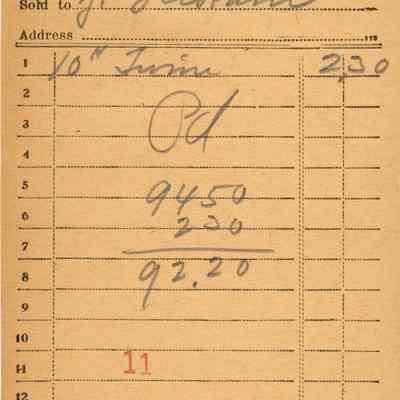 Sold to J.
Address 115
1 10" Twine 2.30
2
3 Pd
4
5 9450
6 230
7
8 92.20
9
10
11 11
12